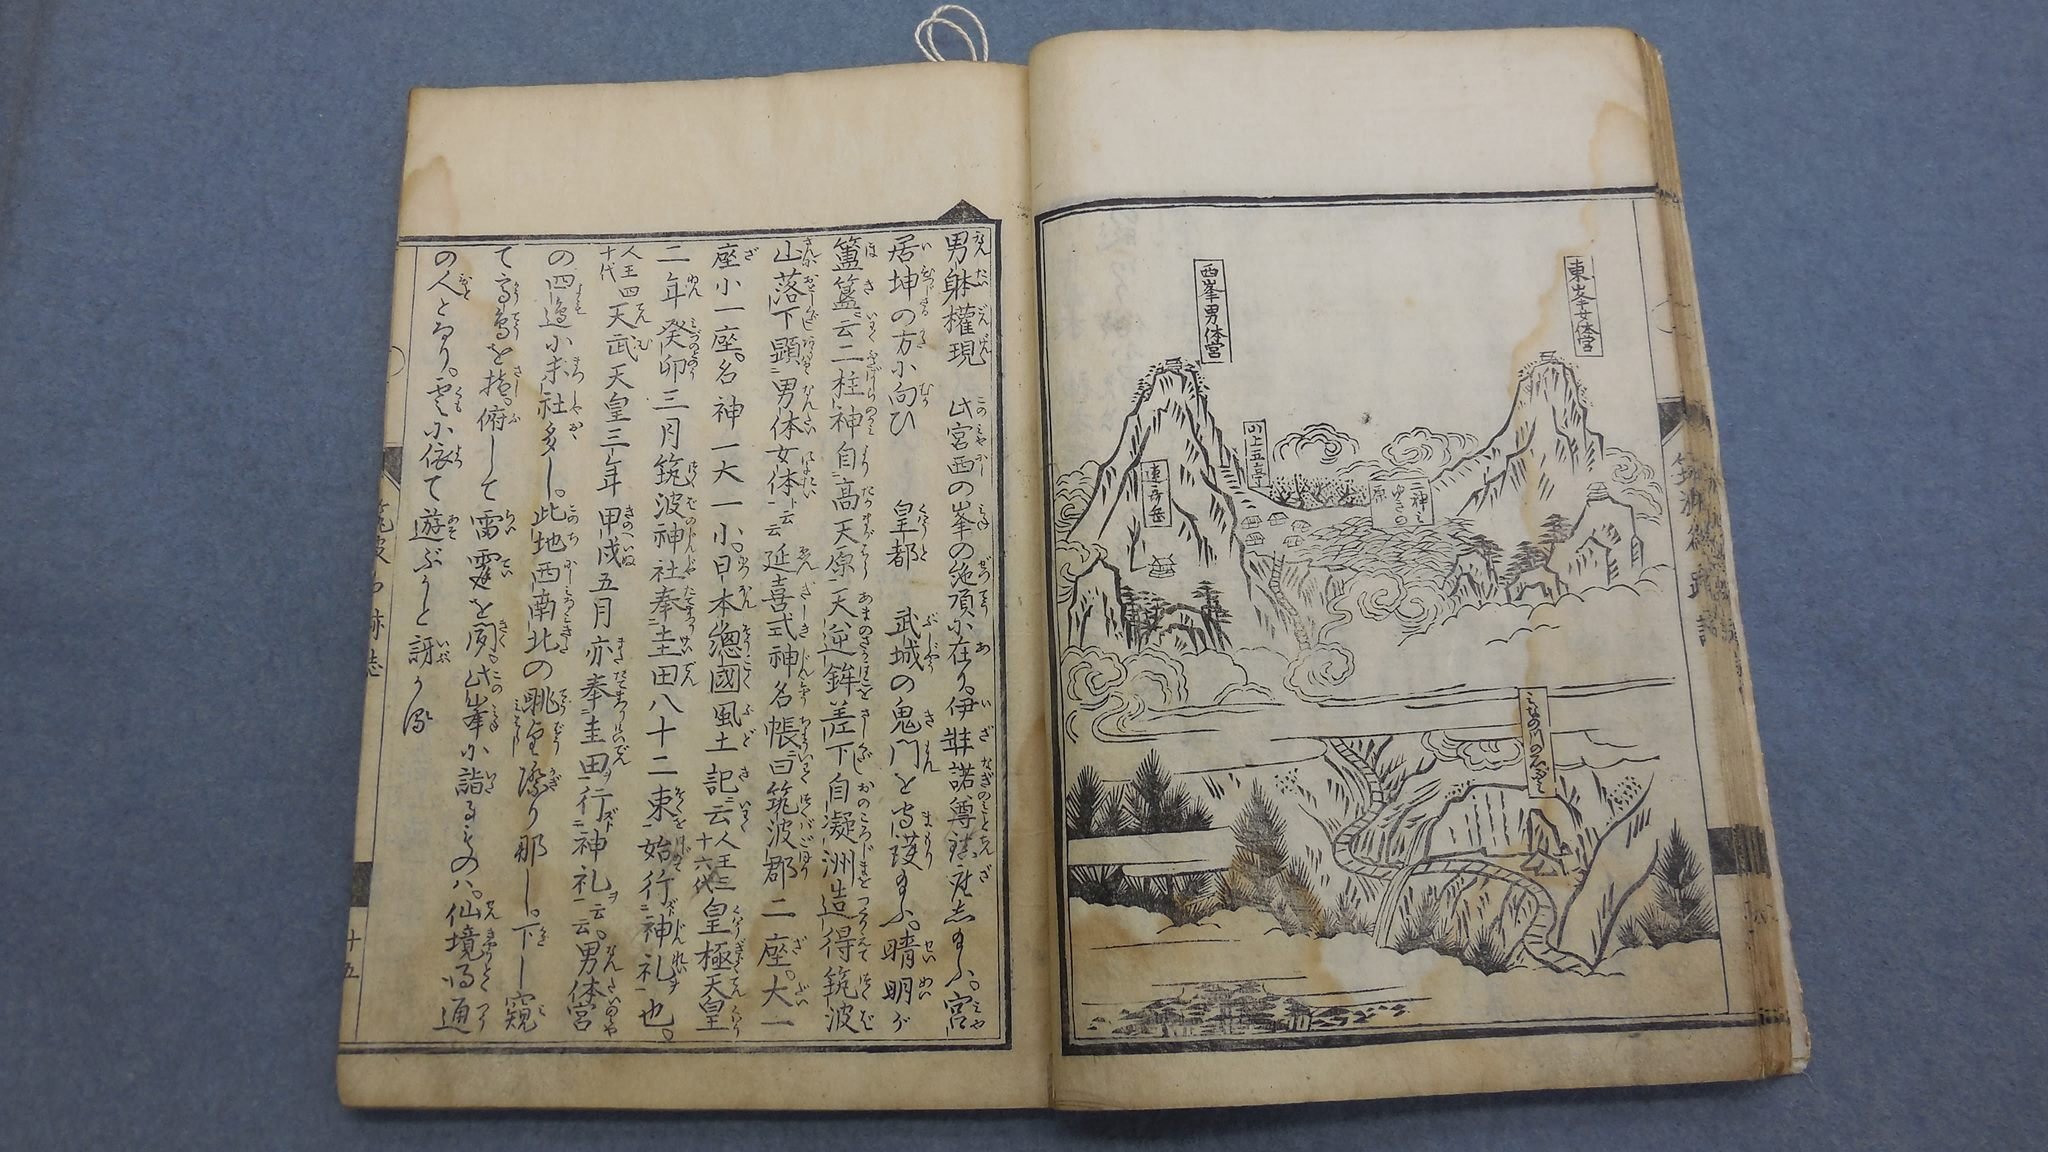 東峯女体宮
西峯男体宮
川上五亭
連哥岳
二神之
ゆきの
原
みなの川の
男躰權現　此宮西の峯の絶頂に在り。伊弉諾尊鎮座志給ふ。宮
居坤の方に向ひ　皇都　武城の鬼門を守護給ふ。晴明が
簠簋云二柱神自高天原天逆鉾差下自凝洲造得筑波
山落下顕男体女体ト云云延喜式神名帳曰筑波郡二座。大一
座小一座。名神一大一小。日本總國風土記云人王三十六代皇極天皇
二年癸卯三月筑波神社奉圭田八十二束始行神礼也。
人王四十代天武天皇三年甲戌五月亦奉圭田ヲ行神礼ヲ云云。男体宮
の四邊に末社多し。此地西南北の眺望際り那し。下し窺
て高鳥を指。俯して雷霆を聞。此峯に詣るものハ。仙境の通
の人となり。雲に依て遊ぶかと訝かる
筑波名跡誌
十五